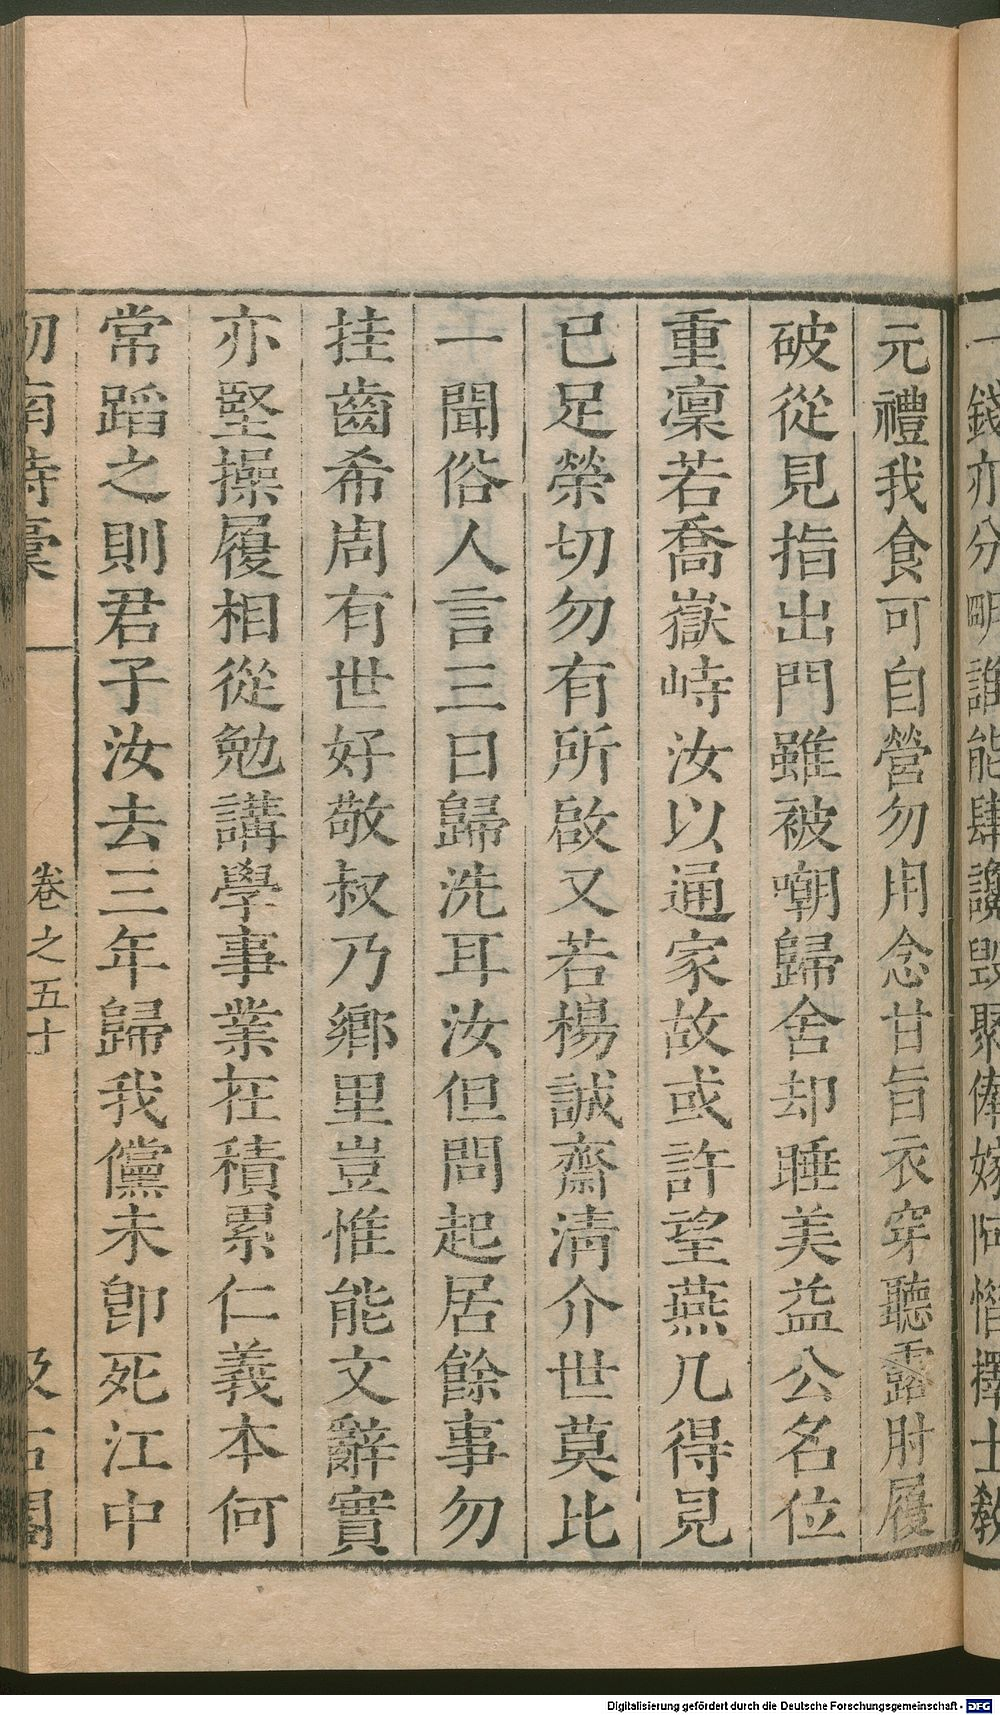 錢亦分明誰能肆讒毀聚俸嫁阿惜擇士教
元禮我食可自營勿用念甘旨衣穿聽露肘履
破從見指出門雖被嘲歸舍却睡美益公名位
重凜若喬嶽峙汝以通家故或許望燕几得見
已足榮切勿有所啟又若楊誠齋清介世莫比
一聞俗人言三日歸洗耳汝但問起居餘事勿
挂齒希周有世好敬叔乃鄉里豈惟能文辭實
亦堅操履相從勉講學事業在積累仁義本何
常蹈之則君子汝去三年歸我儻未卽死江中
劍南詩稾 卷之五十 汲古閣
Digitalisierung gefördert durch die Deutsche Forschungsgemeinschaft - DFG